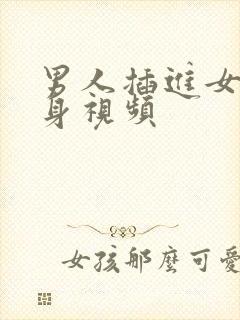 男人插進女
身視頻
女孩那麼可愛